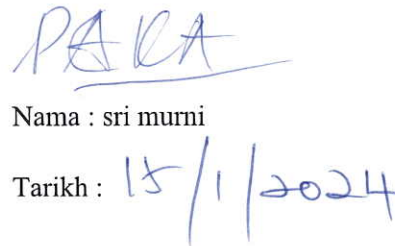 Nama : sri murni
Tarikh : 15/1/2024